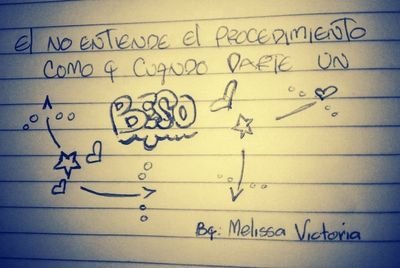 El NO ENTIENDE El PROCEDIMIENTO
COMO Y CUANDO DARTE UN
BESO
By: Melissa Victoria